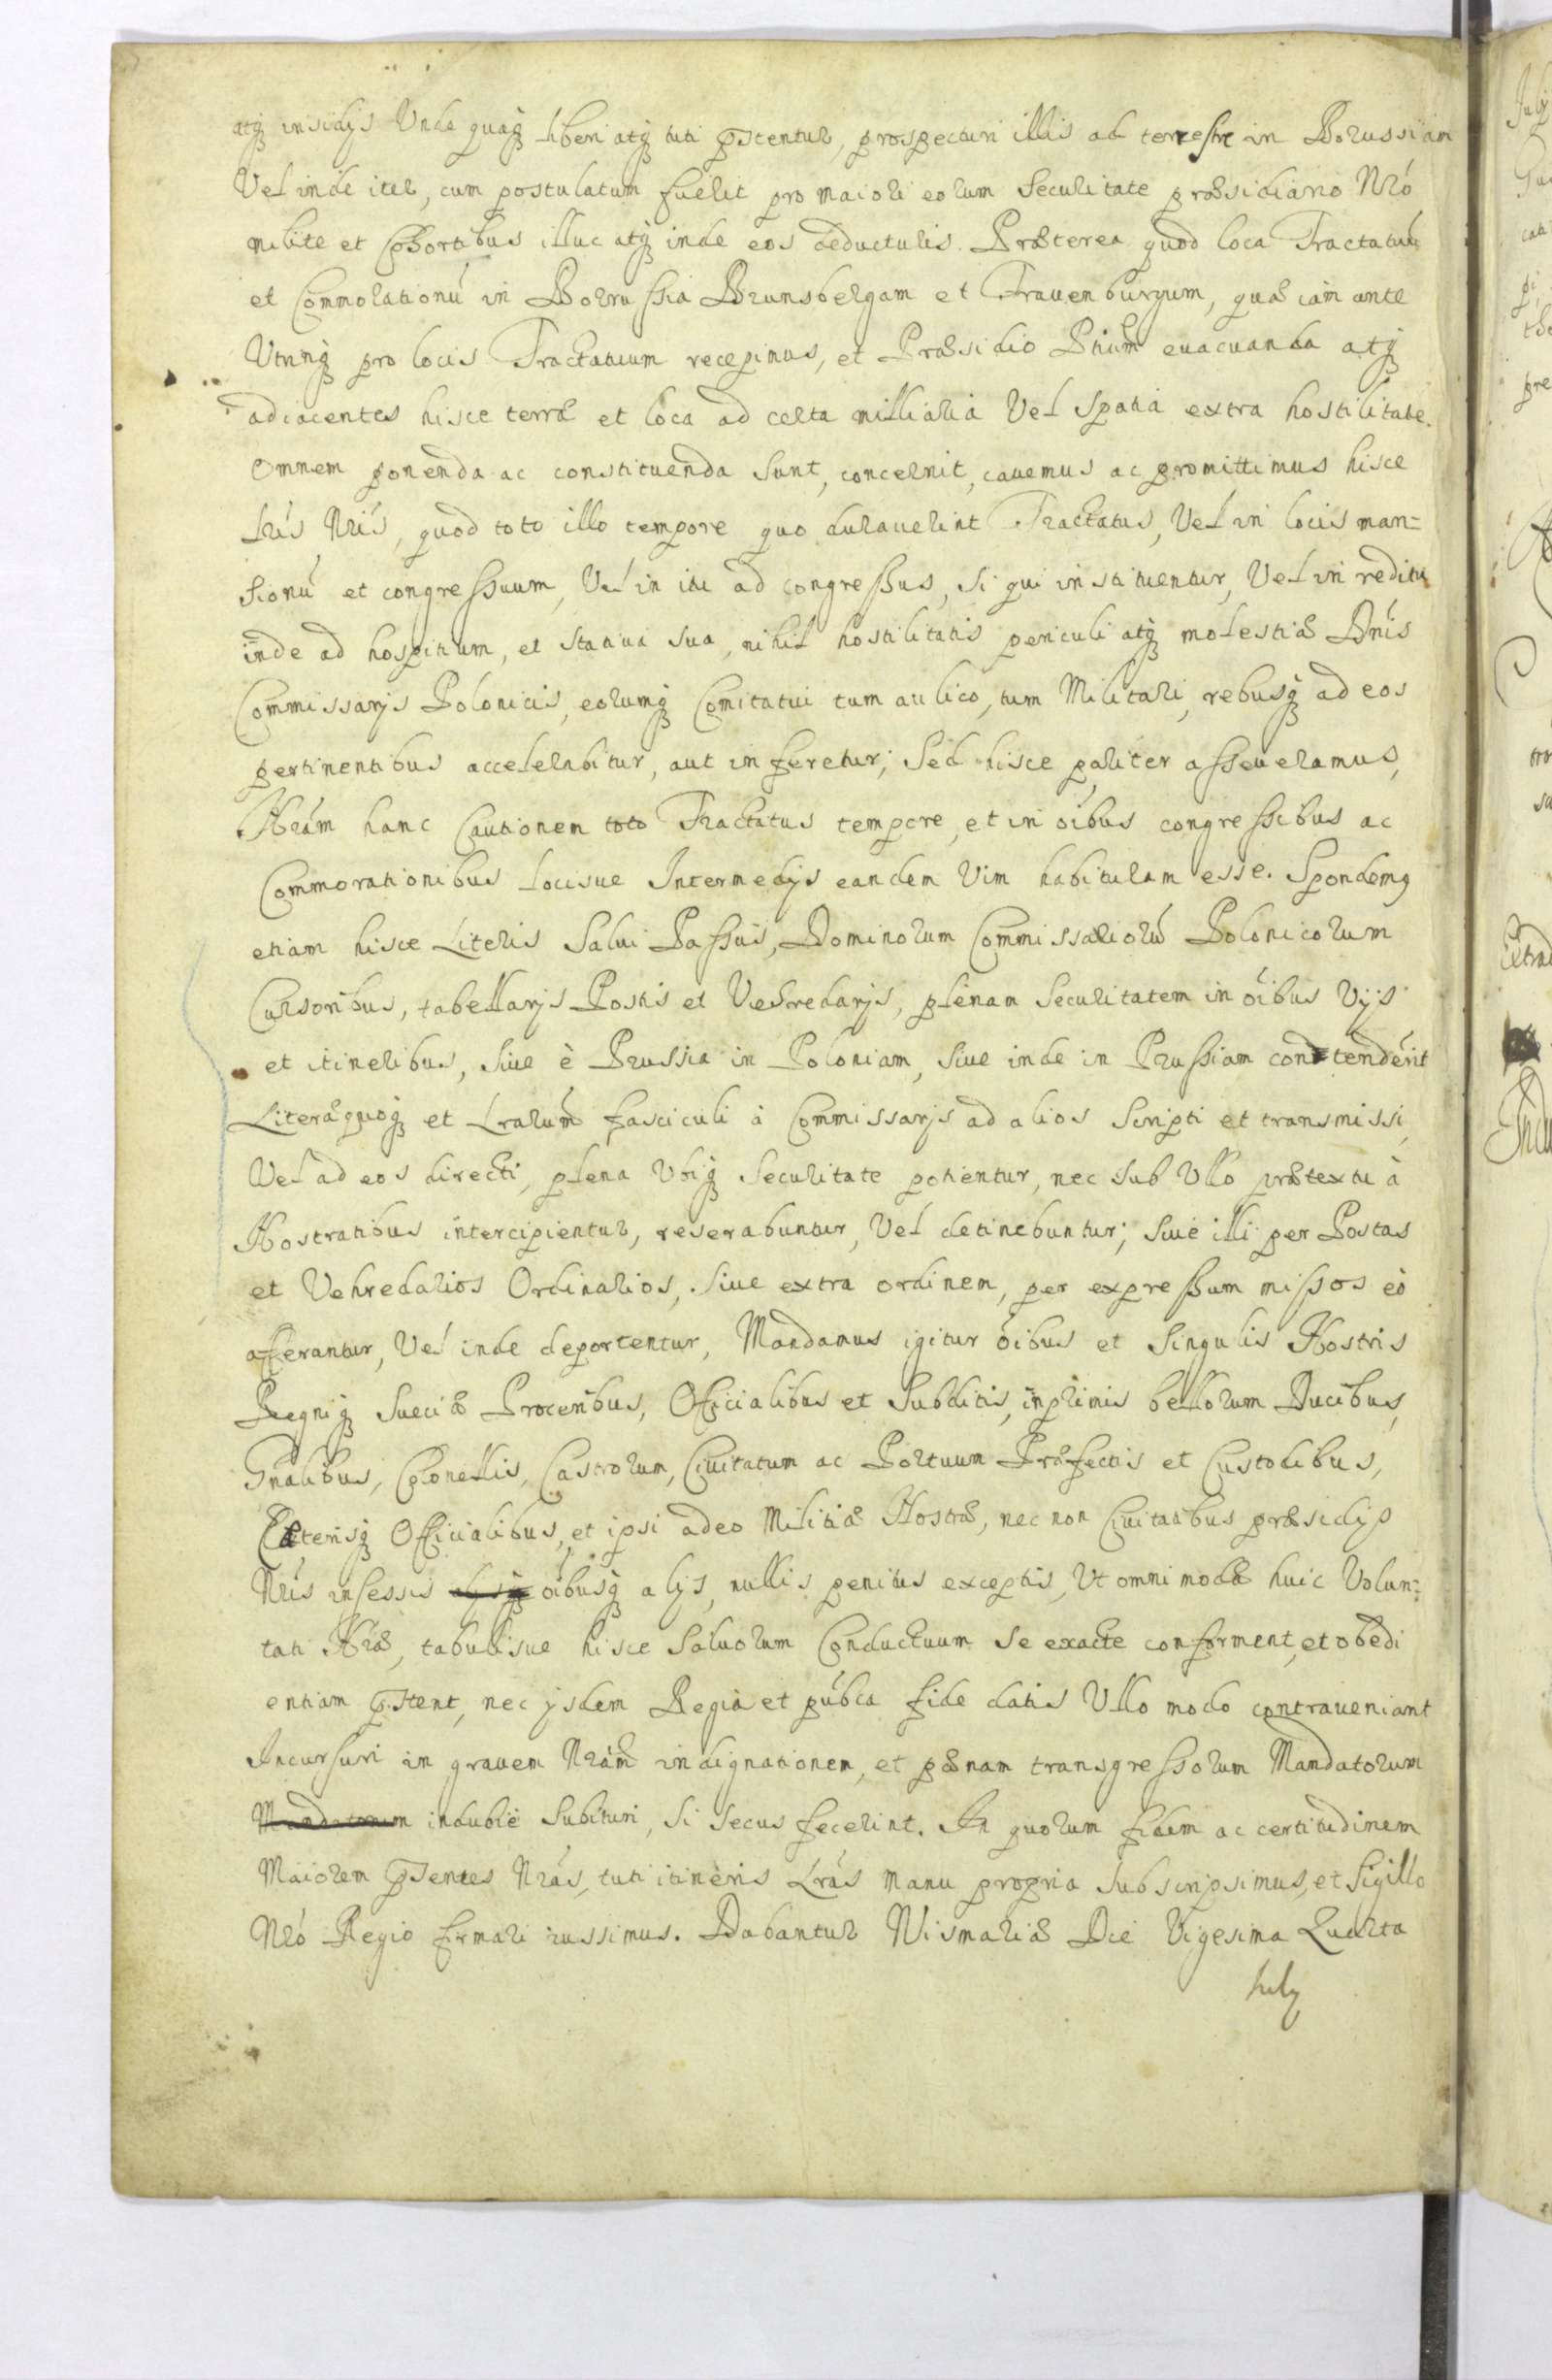 atq insidijs Unde quaq liberi atq tuti pstentur, prospecturi illis ad terrestre in Borussiam
Vel inde iter, cum postulatum fuerit pro maiori eorum Securitate præsidiario Nró
milite et Cohortibus illuc atq inde eos deducturis. Præterea quod loca Tractatuú
et Commorationú in Borrussia Brunsbergam et Frauenburgum, quæ iam ante
Utrinq pro locis Tractatuum recepimus, et Præsidio euacuanda atq
adiacentes hisce terræ et loca ad certa milliaria Vel Spatia extra hostilitate.
Omnem ponenda ac constituenda Sunt, concernit, cauemus ac promittimus hisce
Lrís Nrís, quod toto illo tempore quo durauerint Tractatus, Vel in locis man=
sionú et congressuum, Vel in itu ad congressus, si qui instituentur, Vel in reditu
inde ad hospitium, et statiua sua, nihil hostilitatis periculi atq molestiæ Dnís
Commissarijs Polonicis, eorumq Comitatui tum aulico, tum Militari, rebusq ad eos
pertinentibus accelerabitur, aut inferetur; Sed hisce pariter asseueramus,
Nrám hanc Cautionem toto Tractatus tempore, et in oíbus congressibus ac
Commorationibus locisue Intermedijs eandem Vim habituram esse. Spondemq
etiam hisce Literis Salui Passus, Dominorum Commissariorú Polonicorum
Cursoribus, tabellarijs Postis et Veredarijs, plenam Securitatem in oíbus Vijs
et itineribus, Siue è Prussia in Poloniam, Siue inde in Prussiam contendérit
Literæ quoq et Lrarum fasciculi à Commissarijs ad alios Scripti et transmissi,
Vel ad eos directi, plena Ubiq Securitate potientur, nec sub Ullo prætextu à
Nostratibus intercipientur, reserabuntur, Vel detinebuntur; Siue illi per Postas
et Vehredarios Ordinarios, Siue extra ordinem, per expressum missos eò
afferantur, Vel inde deportentur, Mandamus igitur oíbus et Singulis Nostris
Regniq Sueciæ Proceribus, Officialibus et Subditis, inprimis bellorum Ducibus,
Gnalibus, Colonellis, Castrorum, Ciuitatum ac Portuum Præfectis et Custodibus,
Cæterisq Officialibus, et ipsi adeo Militiæ Nostræ, nec non Ciuitatibus præsidijs
Nrís insessis alysq oíbusq alijs, nullis penitus exceptis, Ut omni modæ huic Volun=
tati Nræ, tabulisue hisce Saluorum Conductuum Se exacte conforment, et obedi
entiam pstent, nec ijsdem Regia et púbca fide datis Ullo modo contraueniant
Incursuri in grauem Nrám indignationem, et pœnam transgressorum Mandatorum
Mandatorum indubiè Subituri, Si Secus fecerint. In quorum fidem ac certitudinem
Maiorem psentes Nrás, tuti itinèris Lrás manu propria Subscripsimus, et Sigillo
Nró Regio firmari iussimus. Dabantur Wismariæ Die Vigesima Quarta
July